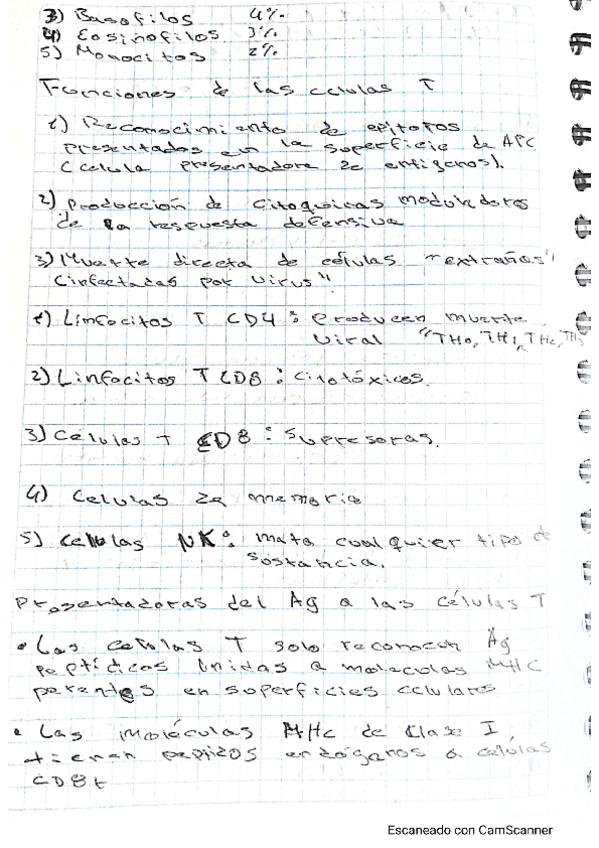 3) Basofilos 4%.
4) Eosinofilos. 3%
5) Monocitos 2%
Funciones de las celulas T
1) Reconocimiento de epitopos
presentados en la superficie de APC
(celula presentadora de antigenos).
2) Producción de citoquinas moduladores
de la respuesta defensiva
3) Muerte directa de células "extraños"
(infectadas por virus".
1) Linfocitos T CD4 : producen muerte
viral "TH0, TH1, TH2, TH3
2) Linfocitos T CD8 : citotóxicos.
3) Celulas T CD8 : Supresoras.
4) Celulas de memoria
5) Celulas NK: mata cualquier tipo de
sostancia.
Presentadoras del Ag a las células T
• Las celulas T solo reconocen Ag
peptídicos unidas a moleculas MHC
en superficies celulares
• Las moléculas MHc de clase I,
tienen peptidos endógenos a celulas
CD8+
Escaneado con CamScanner